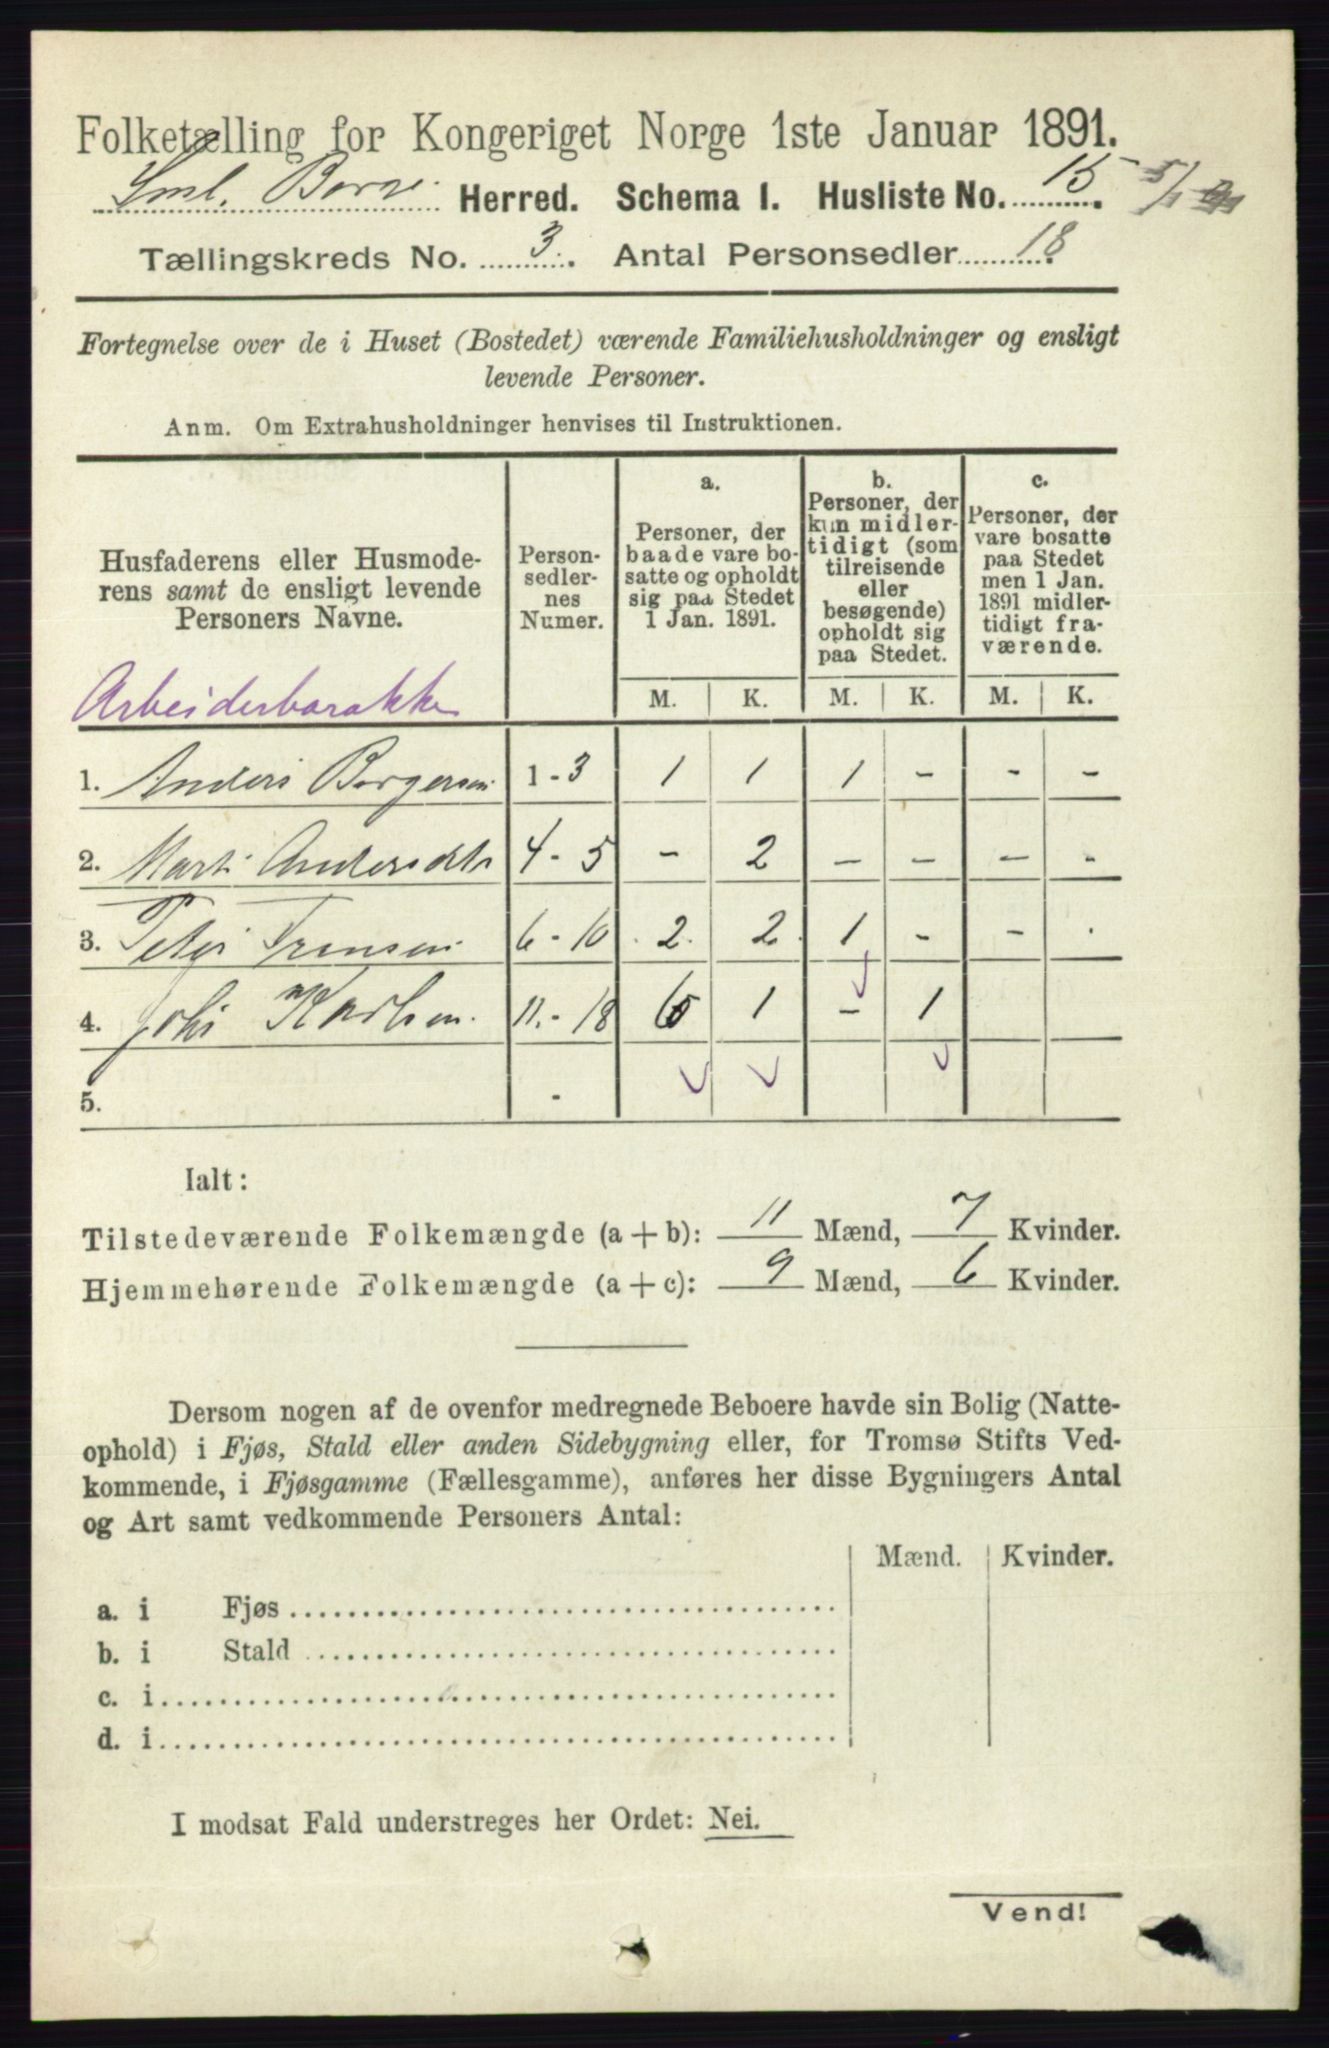 Folketælling for Kongeriget Norge 1ste Januar 1891.
Sml. Borge Herred. Schema 1. Husliste No. 15
Tællingskreds No. 3. Antal Personsedler 18.
Fortegnelse over de i Huset (Bostedet) værende Familiehusholdninger og ensligt
levende Personer.
Anm. Om Extrahusholdninger henvises til Instruktionen.
Husfaderens eller Husmode-
rens samt de ensligt levende
Personers Navne.
Person-
sedler-
nes
Numer.
a.
Personer, der
baade vare bo-
satte og opholdt
sig paa Stedet
1 Jan. 1891.
b.
Personer, der
kun midler-
tidigt (som
tilreisende
eller
besøgende)
opholdt sig
paa Stedet.
c.
Personer, der
vare bosatte
paa Stedet
men 1 Jan.
1891 midler-
tidigt fra-
værende.
Arbeiderbarakke
M. K. M. K. M. K.
1. Anders Borgersen 1 - 3 1 1 1 - - -
2. Andersdtr 4 - 5 - 2 - - - -
3. 6 - 10 2 2 1 - - -
4. Karlsen 11 - 18 6 1 - 1
5. -
Ialt:
Tilstedeværende Folkemængde (a + b): 11 Mænd, 7 Kvinder.
Hjemmehørende Folkemængde (a + c): 9 Mænd, 6 Kvinder.
Dersom nogen af de ovenfor medregnede Beboere havde sin Bolig (Natte-
ophold) i Fjøs, Stald eller anden Sidebygning eller, for Tromsø Stifts Ved-
kommende, i Fjøsgamme (Fællesgamme), anføres her disse Bygningers Antal
og Art samt vedkommende Personers Antal:
Mænd. Kvinder.
a. i Fjøs
b. i Stald
c. i
d. i
I modsat Fald understreges her Ordet: Nei.
Vend!